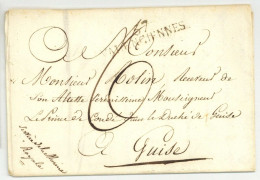 A Monsieur
VALENCIENNES
Monsieur Molin Receveur de
Son Altesse Serenissime Monseigneur
Le Prince de Condé dans le Duché de Guise
A Guise